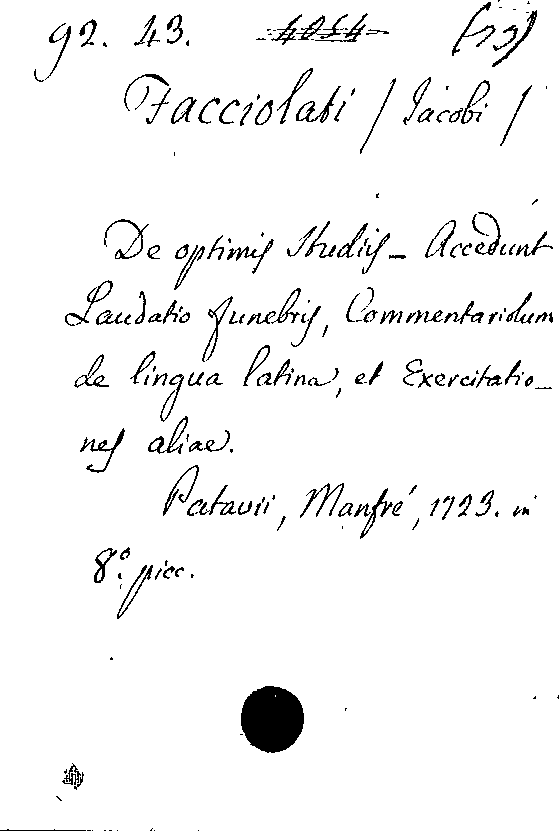 92. 43. 4054 (73)
Facciolati / Iacobi /
De optimis Studiis_ Accedunt
Laudatio funebris, Commentariolum
de lingua latina, et Exercitatio_
nes aliae.
Patavii, Manfré, 1723. in
8.° picc.